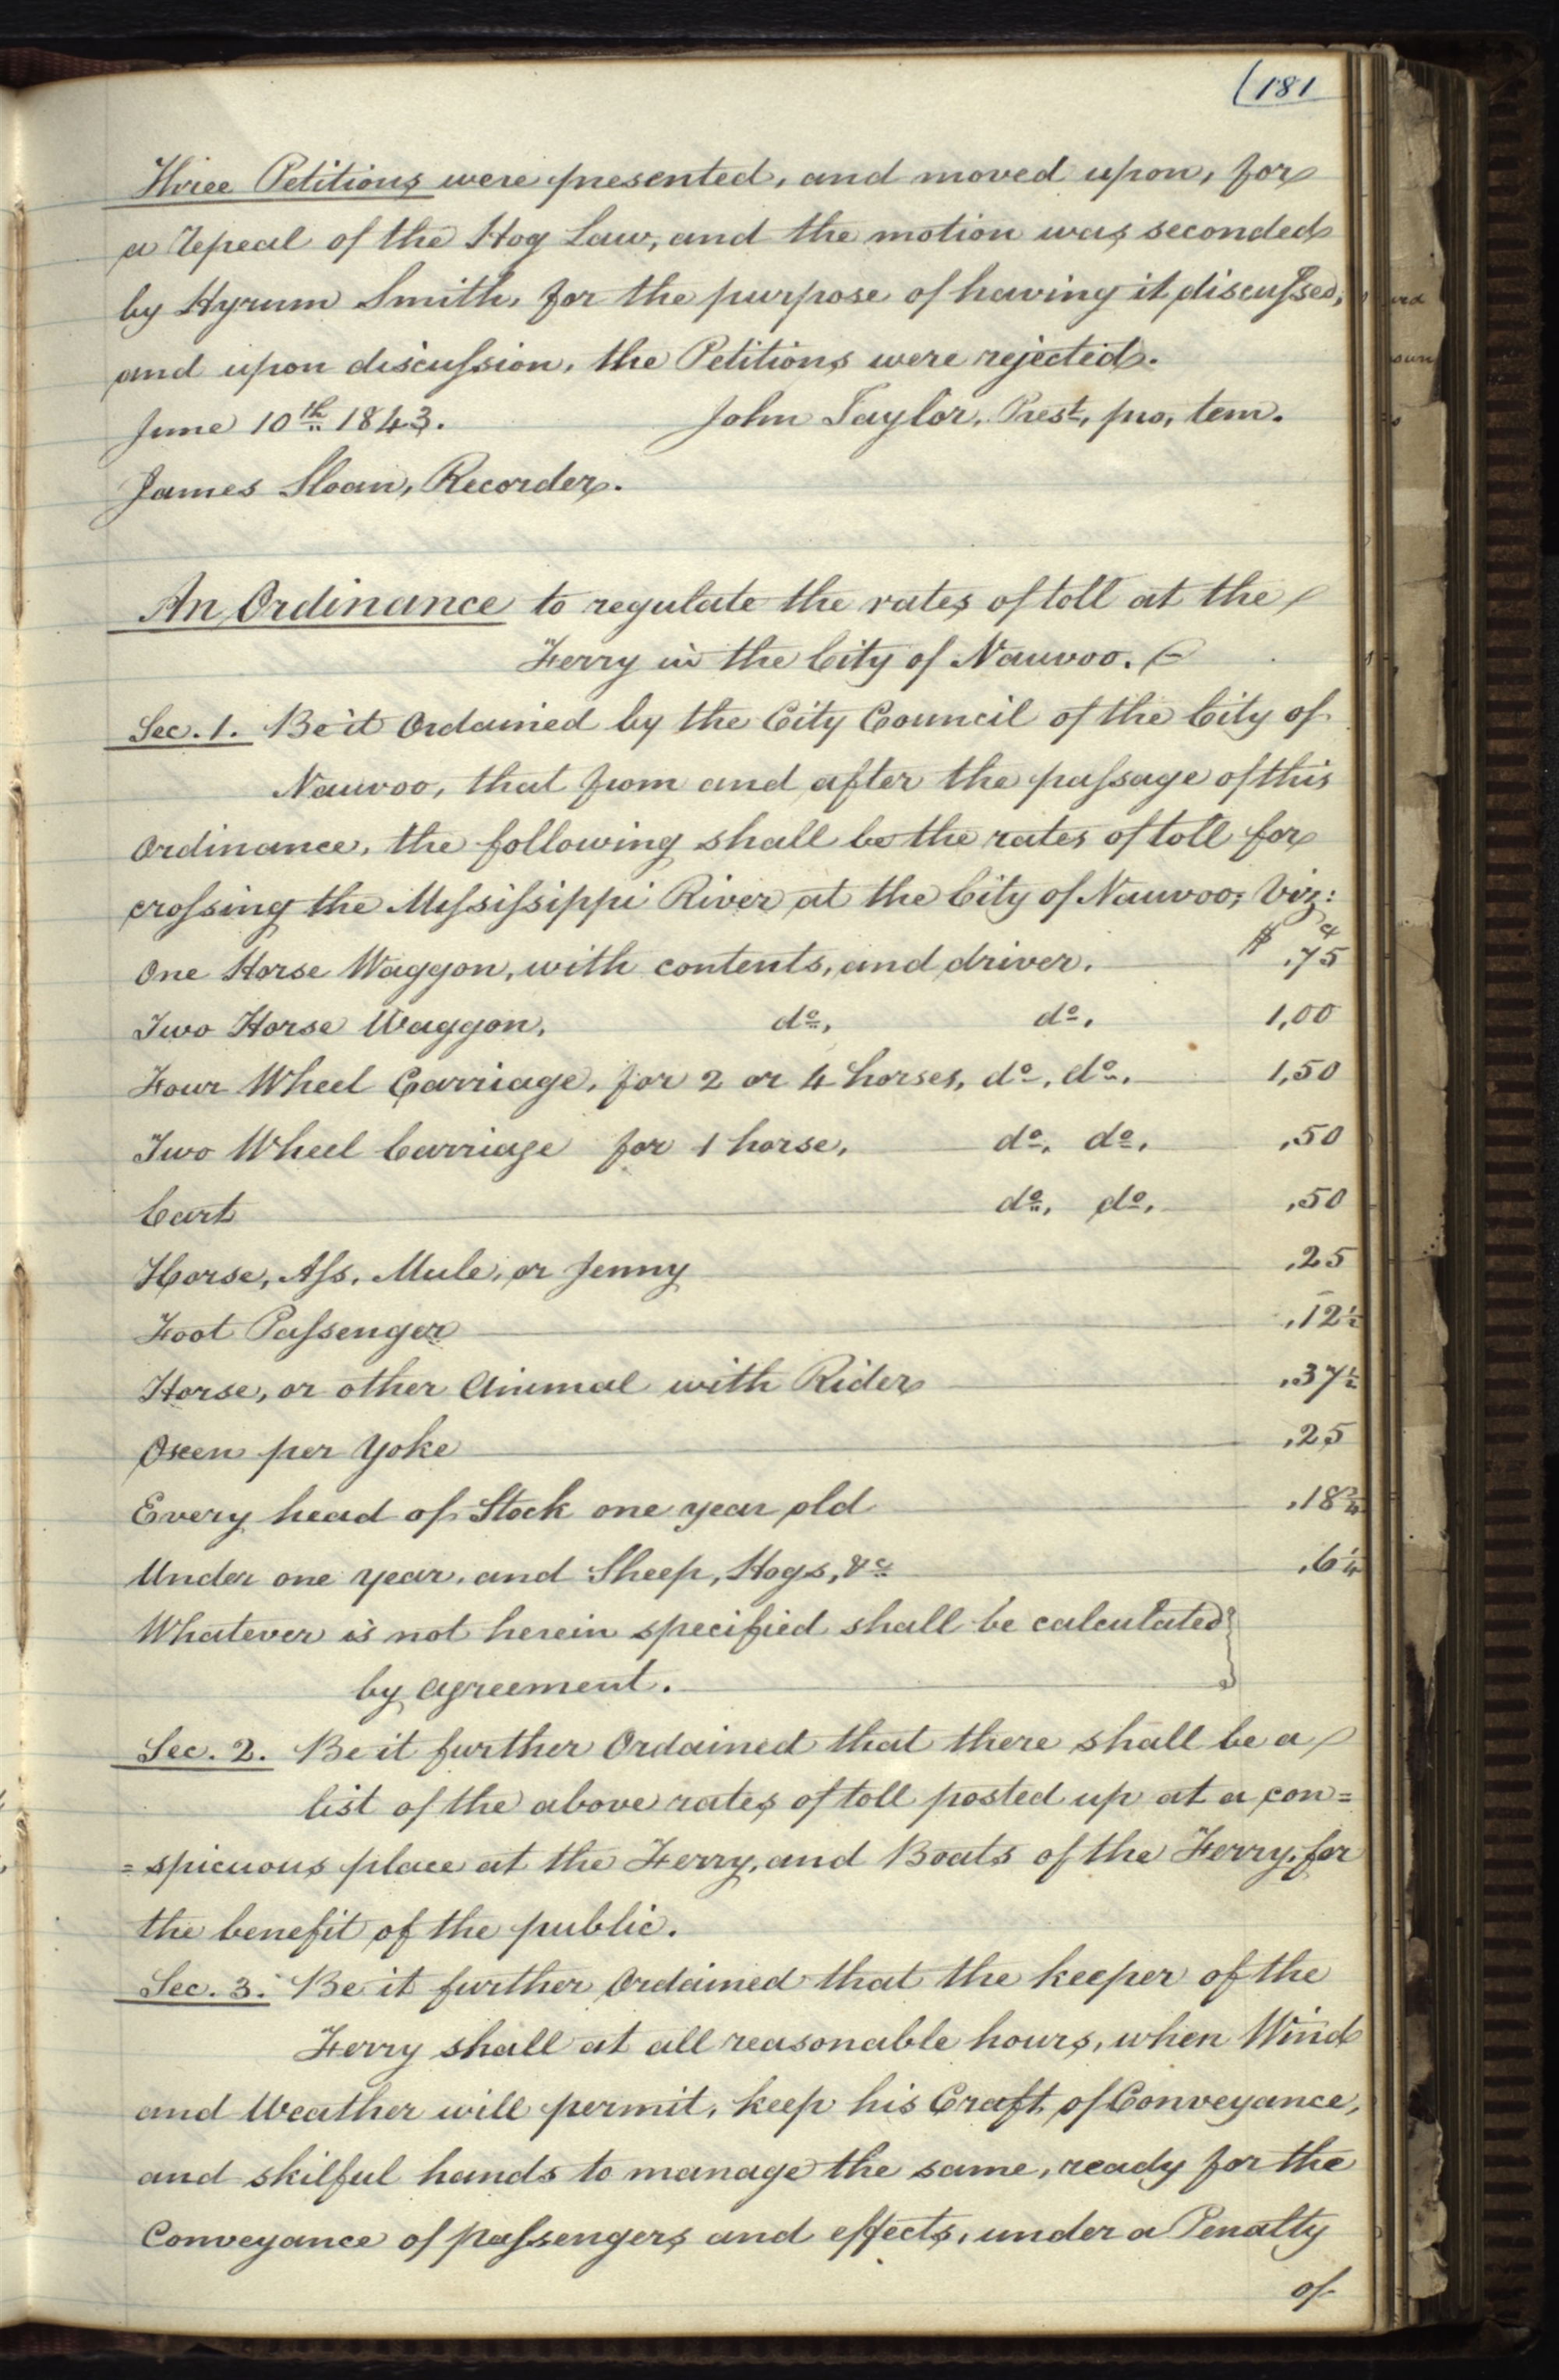 (181
Three Petitions were presented, and moved upon, for
a repeal of the Hog Law, and the motion was seconded
by Hyrum Smith, for the purpose of having it discussed,
and upon discussion, the Petitions were rejected.
June 10th 1843. John Taylor, Prest, pro, tem.
James Sloan, Recorder.
An Ordinance to regulate the rates of toll at the
Ferry in the City of Nauvoo.
Sec. 1. Be it Ordained by the City Council of the City of
Nauvoo, that from and after the passage of this
Ordinance, the following shall be the rates of toll for
crossing the Mississippi River at the City of Nauvoo; Viz:
$ c
One Horse Waggon, with contents, and driver. ,75
Two Horse Waggon, do, do. 1,00
Four Wheel Carriage, for 2 or 4 horses, do, do. 1,50
Two Wheel Carriage for 1 horse, do, do, ,50
Cart do, do, ,50
Horse, Ass, Mule, or Jenny ,25
Foot Passenger ,12½
Horse, or other Animal with Rider ,37½
Oxen per Yoke ,25
Every head of Stock one year old ,18¾
Under one year, and Sheep, Hogs, &c ,6¼
Whatever is not herein specified shall be calculated
by agreement.
Sec. 2. Be it further Ordained that there shall be a
list of the above rates of toll posted up at a con=
=spicuous place at the Ferry, and Boats of the Ferry, for
the benefit of the public.
Sec. 3. Be it further Ordained that the keeper of the
Ferry shall at all reasonable hours, when Wind
and Weather will permit, keep his Craft of Conveyance,
and skilful hands to manage the same, ready for the
Conveyance of passengers and effects, under a Penalty
of